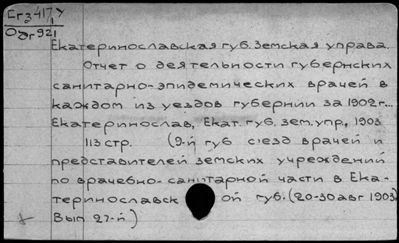 Ег 3417У
Одг921
Екатеринославская губ. Земская управа.
Отчет о деятельности губернских
санитарно-эпидемических врачей в
каждом из уездов губернии за 1902г...
Екатеринослав, Екат. губ. зем. упр., 1903
113 стр. (9-й губ съезд врачей и
представителей земских учреждений
по врачебно-санитарной части в Ека-
теринославск ой губ. (20-30 авг 1903)
Вып 27-й)